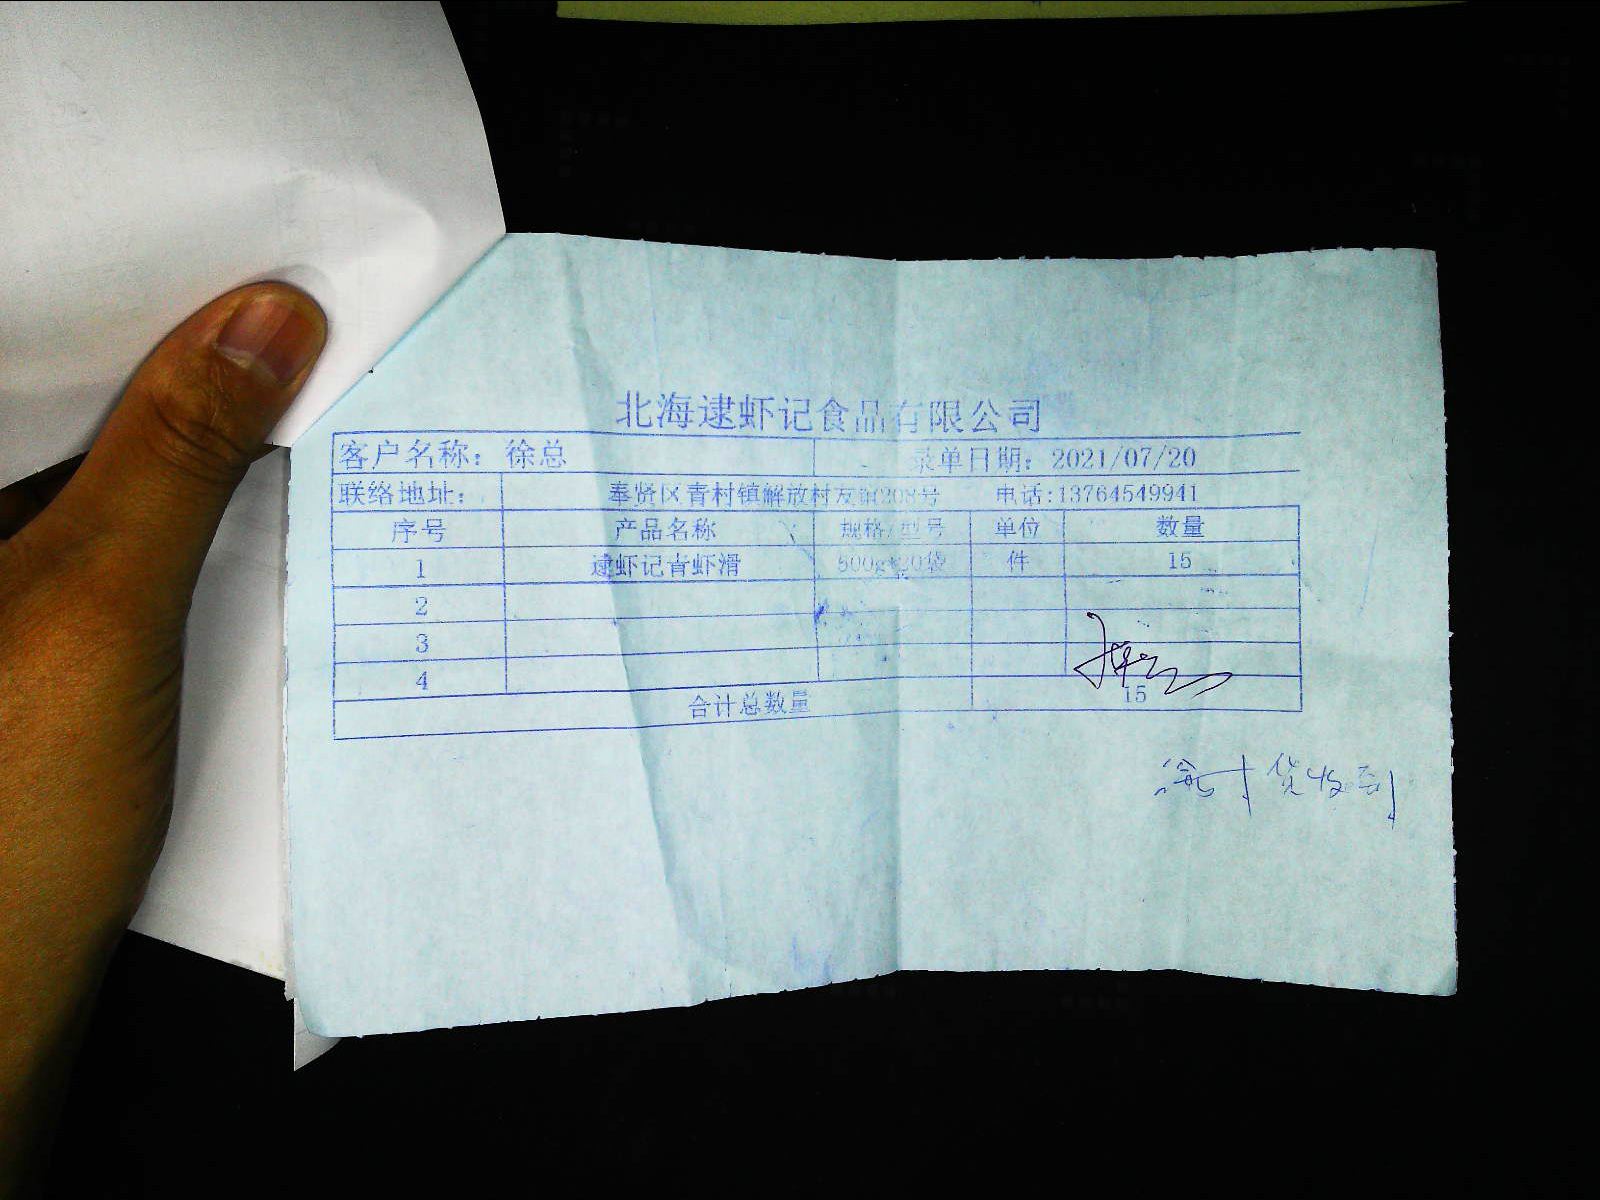 北海逮虾记食品有限公司
客户名称：徐总 录单日期：2021/07/20
联络地址： 奉贤区青村镇解放村友谊208号 电话:13764549941
序号 产品名称 规格/型号 单位 数量
1 逮虾记青虾滑 500g*20袋 件 15
2
3
4
合计总数量 15
货收到